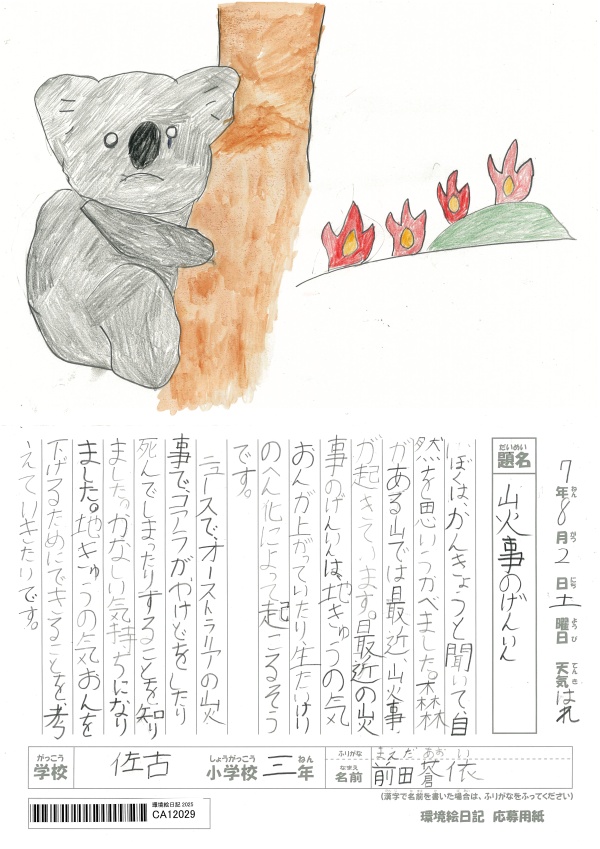 7年8月2日土曜日 天気はれ
ねん がつ にち ようび てんき
だいめい
題名
山火事のげんいん
ぼくは、かんきょうと聞いて、自
然を思いうかべました。森林
がある山では最近、山火事
が起きています。最近の山火
事のげんいんは、地きゅうの気
おんが上がっていたり、生たいけい
のへん化によって起こるそう
です。
ニュースで、オーストラリアの山火
事で、コアラがやけどをしたり
死んでしまったりすることを知り
ました。かなしい気持ちになり
ました。地きゅうの気おんを
下げるためにできることを、考
えていきたいです。
がっこう しょうがっこう ねん
学校 佐古 小学校 三年
ふりがな まえだ あおい
なまえ
名前 前田 蒼依
(漢字で名前を書いた場合は、ふりがなをふってください)
環境絵日記 2025
CA12029
環境絵日記 応募用紙